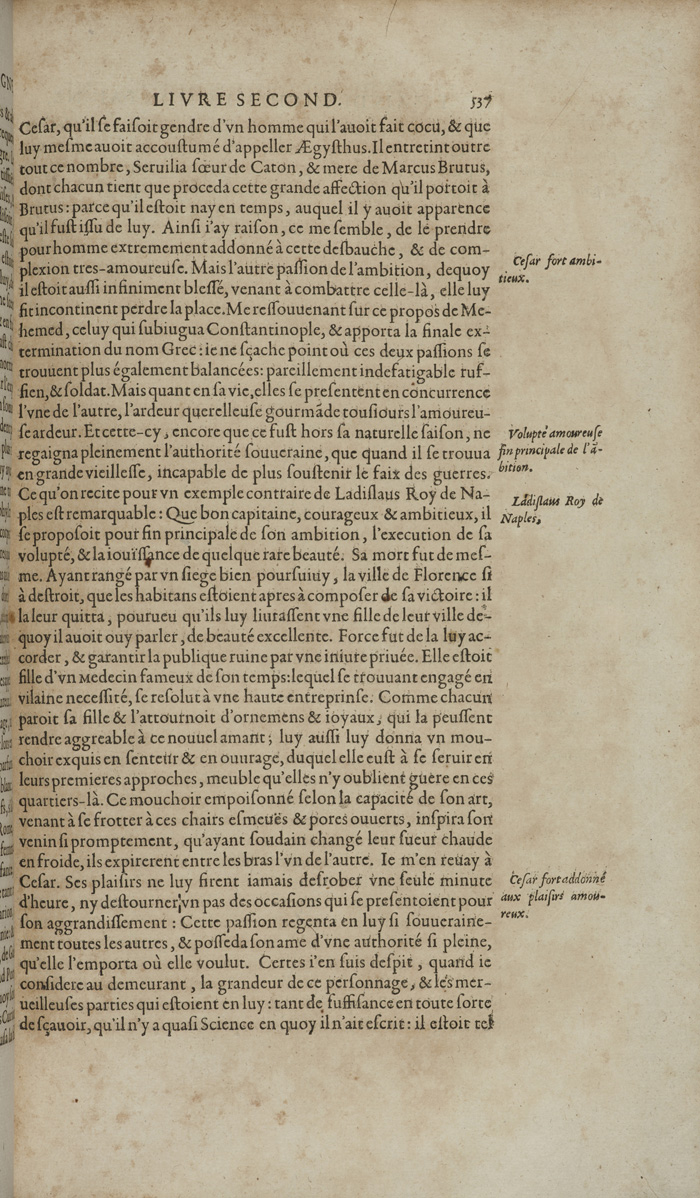 LIVRE SECOND. 537
Ceſar, qu'il ſe faiſoit gendre d'vn homme qui l'auoit fait cocu, & que
luy meſme auoit accouſtumé d'appeller Ægyſthus. Il entretint outre
tout ce nombre, Seruilia ſœur de Caton, & mere de Marcus Brutus,
dont chacun tient que proceda cette grande affection qu'il portoit à
Brutus: parce qu'il eſtoit nay en temps, auquel il y auoit apparence
qu'il fuſt iſſu de luy. Ainſi i'ay raiſon, ce me ſemble, de le prendre
pour homme extremement addonné à cette deſbauche, & de com-
plexion tres-amoureuſe. Mais l'autre paſſion de l'ambition, dequoy
il eſtoit auſſi infiniment bleſſé, venant à combattre celle-là, elle luy
fit incontinent perdre la place. Me reſſouuenant ſur ce propos de Me-
hemed, celuy qui ſubiugua Conſtantinople, & apporta la finale ex-
termination du nom Grec: ie ne ſçache point où ces deux paſſions ſe
trouuent plus également balancées: pareillement indefatigable ruf-
fien, & ſoldat. Mais quant en ſa vie, elles ſe preſentent en concurrence
l'vne de l'autre, l'ardeur querelleuſe gourmāde touſiours l'amoureu-
ſe ardeur. Et cette-cy, encore que ce fuſt hors ſa naturelle ſaiſon, ne
regaigna pleinement l'authorité ſouueraine, que quand il ſe trouua
en grande vieilleſſe, incapable de plus ſouſtenir le faix des guerres.
Ce qu'on recite pour vn exemple contraire de Ladiſlaus Roy de Na-
ples eſt remarquable: Que bon capitaine, courageux & ambitieux, il
ſe propoſoit pour fin principale de ſon ambition, l'execution de ſa
volupté, & la iouïſſance de quelque rare beauté. Sa mort fut de meſ-
me. Ayant rangé par vn ſiege bien pourſuiuy, la ville de Florence ſi
à deſtroit, que les habitans eſtoient apres à compoſer de ſa victoire: il
la leur quitta, pourueu qu'ils luy liuraſſent vne fille de leur ville de-
quoy il auoit ouy parler, de beauté excellente. Force fut de la luy ac-
corder, & garantir la publique ruine par vne iniure priuée. Elle eſtoit
fille d'vn Medecin fameux de ſon temps: lequel ſe trouuant engagé en
vilaine neceſſité, ſe reſolut à vne haute entreprinſe. Comme chacun
paroit ſa fille & l'attournoit d'ornemens & ioyaux, qui la peuſſent
rendre aggreable à ce nouuel amant; luy auſſi luy donna vn mou-
choir exquis en ſenteur & en ouurage, duquel elle euſt à ſe ſeruir en
leurs premieres approches, meuble qu'elles n'y oublient guere en ces
quartiers-là. Ce mouchoir empoiſonné ſelon la capacité de ſon art,
venant à ſe frotter à ces chairs eſmeuës & pores ouuerts, inſpira ſon
venin ſi promptement, qu'ayant ſoudain changé leur ſueur chaude
en froide, ils expirerent entre les bras l'vn de l'autre. Ie m'en reuay à
Ceſar. Ses plaiſirs ne luy firent iamais deſrober vne ſeule minute
d'heure, ny deſtourner vn pas des occaſions qui ſe preſentoient pour
ſon aggrandiſſement: Cette paſſion regenta en luy ſi ſouueraine-
ment toutes les autres, & poſſeda ſon ame d'vne authorité ſi pleine,
qu'elle l'emporta où elle voulut. Certes i'en ſuis deſpit, quand ie
conſidere au demeurant, la grandeur de ce perſonnage, & les mer-
ueilleuſes parties qui eſtoient en luy: tant de ſuffiſance en toute ſorte
de ſçauoir, qu'il n'y a quaſi Science en quoy il n'ait eſcrit: il eſtoit tel
Ceſar fort ambi-
tieux.
Volupté amoureuſe
fin principale de l'ā-
bition.
Ladiſlaus Roy de
Naples,
Ceſar fort addonné
aux plaiſirs amou-
reux.